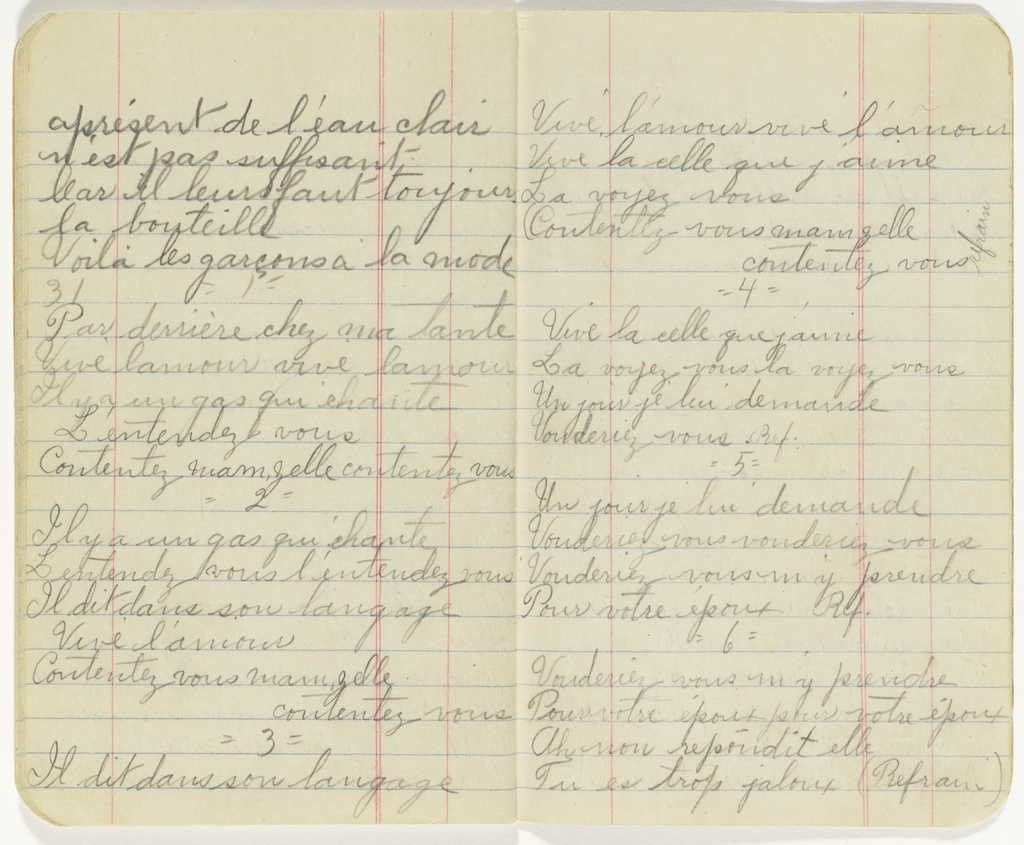 aprésent de l'éau clair
n'est pas suffisant
Car il leurs faut toujours
la bouteille
Voilà les garçons à la mode
31 = 1 =
Par derrière chez ma tante
Vive lamour vive lamour
Il y a un gas qui chante
L'entendez vous
Contentez mam,zelle contentez vous
= 2 =
Il y a un gas qui chante
L'entendez vous l'entendez vous
Il dit dans son langage
Vive l'amour
Contentez vous mam,zelle
contentez vous
= 3 =
Il dit dans son langage
Vive, l'amour vive l'amour
Vive la celle que j'aime
La voyez vous
(Contentez vous mamzelle
contentez vous
refrain
= 4 =
Vive la celle que j'aime
La voyez vous la voyez vous
Un jour je lui demande
Vouderiez vous Ref.
= 5 =
Un jour je lui demande
Vouderiez vous vouderiez vous
Vouderiez vous m'y prendre
Pour votre époux Ref.
= 6 =
Vouderiez vous m'y prendre
Pour votre époux pour votre époux
Ah non repondit elle
Tu es trop jaloux (Refrain)